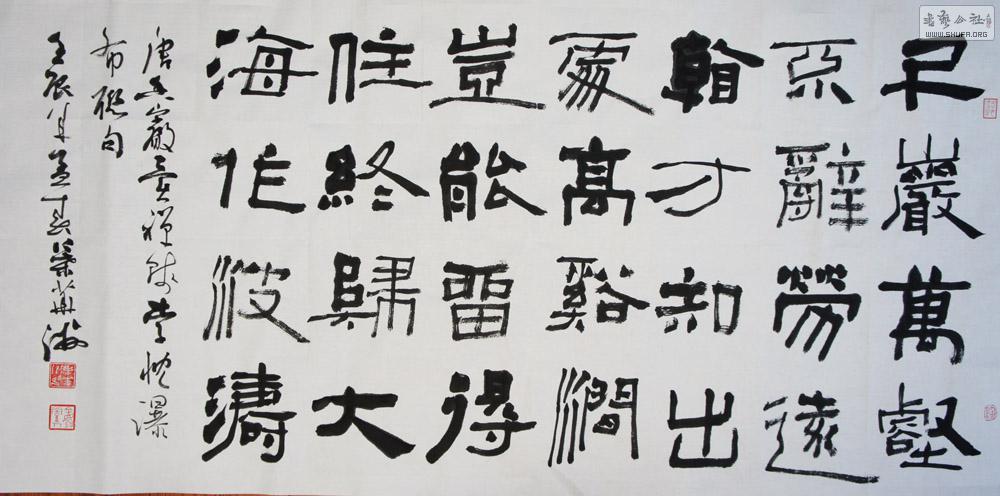 千巖萬壑
不辭勞遠
看方知出
處高谿澗
豈能留得
住終歸大
海作波濤
唐香嚴禪師李忱瀑
布聯句
壬辰年孟春
書藝公社
WWW.SHUFA.ORG